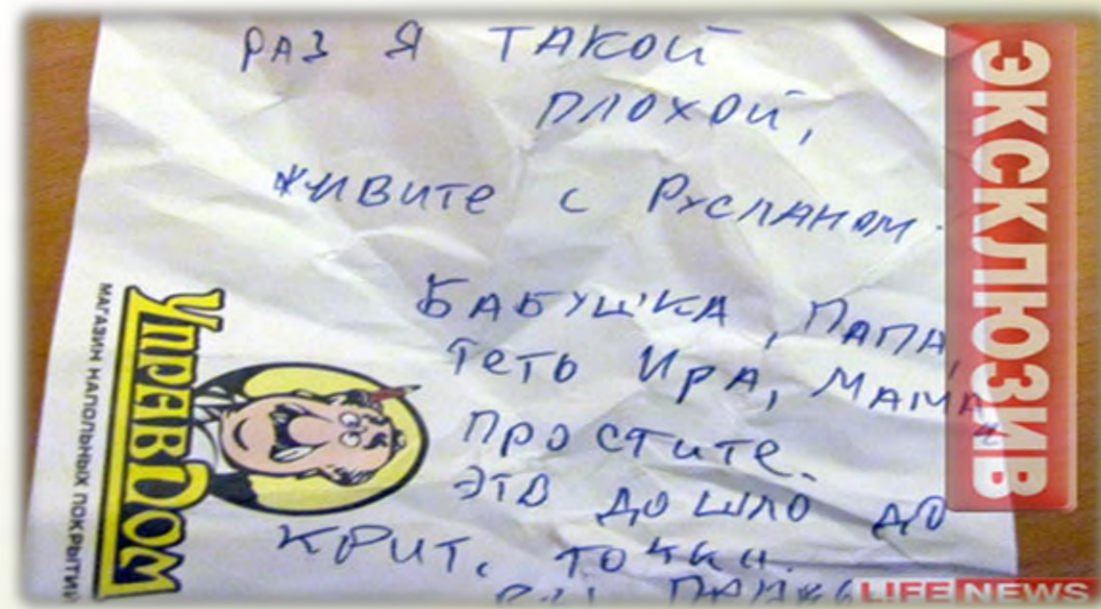 РАЗ Я ТАКОЙ
ПЛОХОЙ,
ЖИВИТЕ С РУСЛАНОМ.
БАБУШКА, ПАПА,
ТЕТЬ ИРА, МАМА
ПРОСТИТЕ.
ЭТО ДОШЛО ДО
КРИТ. ТОЧКИ.
УПРАВДОМ
МАГАЗИН НАПОЛЬНЫХ ПОКРЫТИЙ
ЭКСКЛЮЗИВ
LIFE NEWS